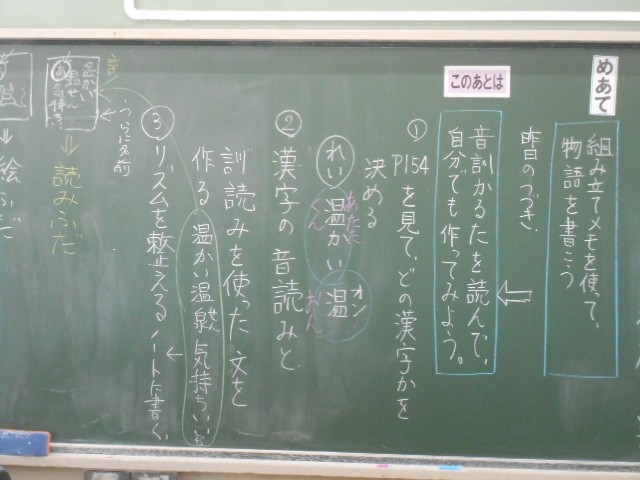 めあて
組み立てメモを使って、
物語を書こう
昨日のつづき
このあとは
音訓かるたを読んで、
自分でも作ってみよう。
① P154を見て、どの漢字かを
決める
れい 温かい 温
あたた
くん
オン
おん
② 漢字の音読みと
訓読みを使った文を
作る 温かい温泉気持ちいいな
③ リズムを整える ノートに書く
うらに名前
音
温かい
温せん
気持ち
⇓ 読みふだ
⇓ 絵ふだ